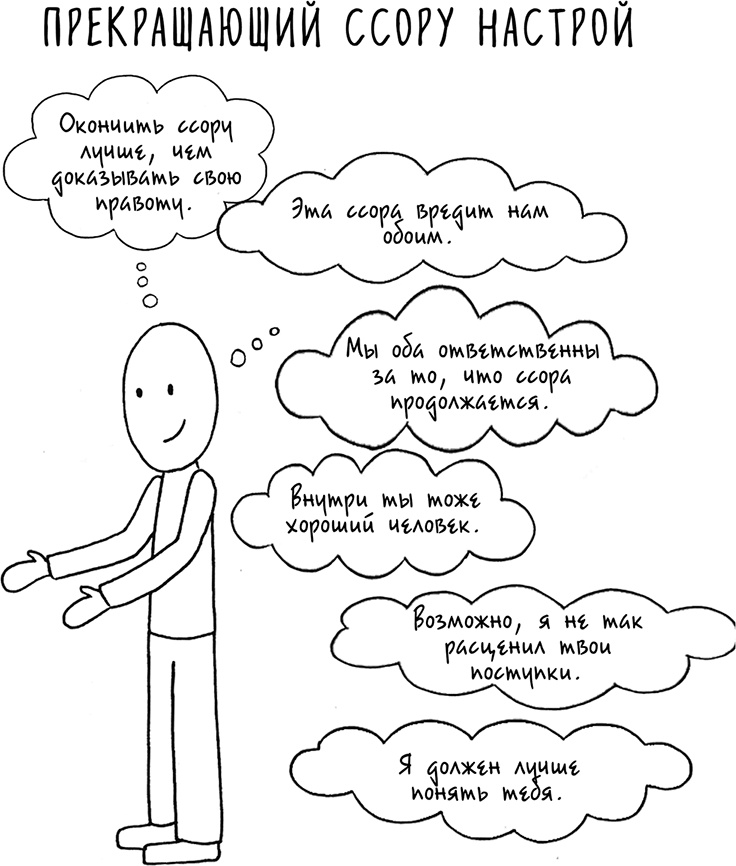 ПРЕКРАЩАЮЩИЙ ССОРУ НАСТРОЙ
Окончить ссору
лучше, чем
доказывать свою
правоту.
Эта ссора вредит нам
обоим.
Мы оба ответственны
за то, что ссора
продолжается.
Внутри ты тоже
хороший человек.
Возможно, я не так
расценил твои
поступки.
Я должен лучше
понять тебя.